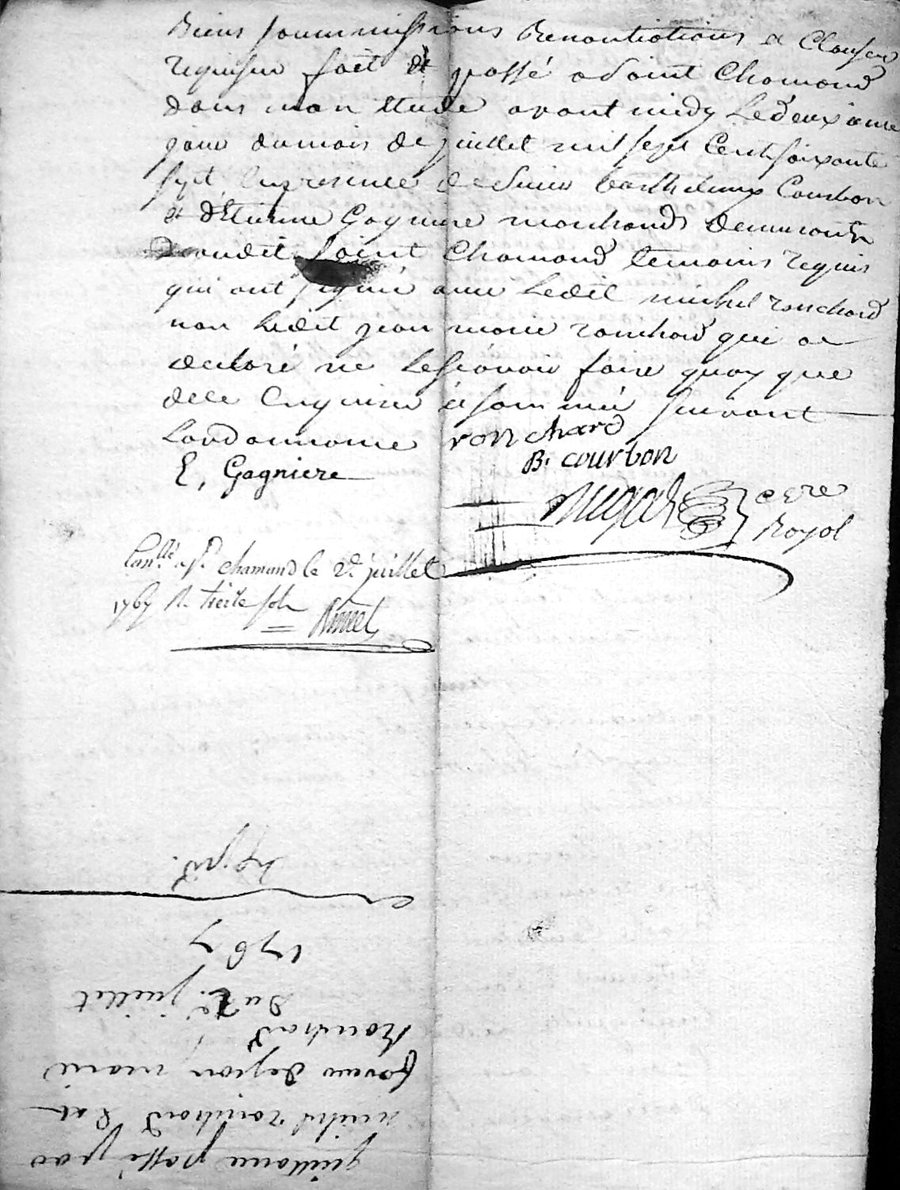 Biens soummissions Renontiations et Clauses
requises fait et passé a saint Chamond
dans mon étude avant midy le deuxième
jour du mois de juillet mil sept Cent soixante
sept, en presence de sieur Barthelemy Courbon
et d'Etienne Gagniere marchands demeurants
audit saint Chamond temoins requis
qui ont signé avec ledit michel ronchard
non ledit jean marie ronchard qui a
declaré ne le scavoir faire quoy que
de ce enquis et sommé suivant
lordonnance ronchard
B. courbon
E, Gagniere
nre
Royal
Con.llé a st. chamond le 2e. juillet
1767 R. treize sols
Exp.d.
1767
Du 2e. juillet
Ronchard
faveur de jean marie
michel ronchard en
quittance passé par